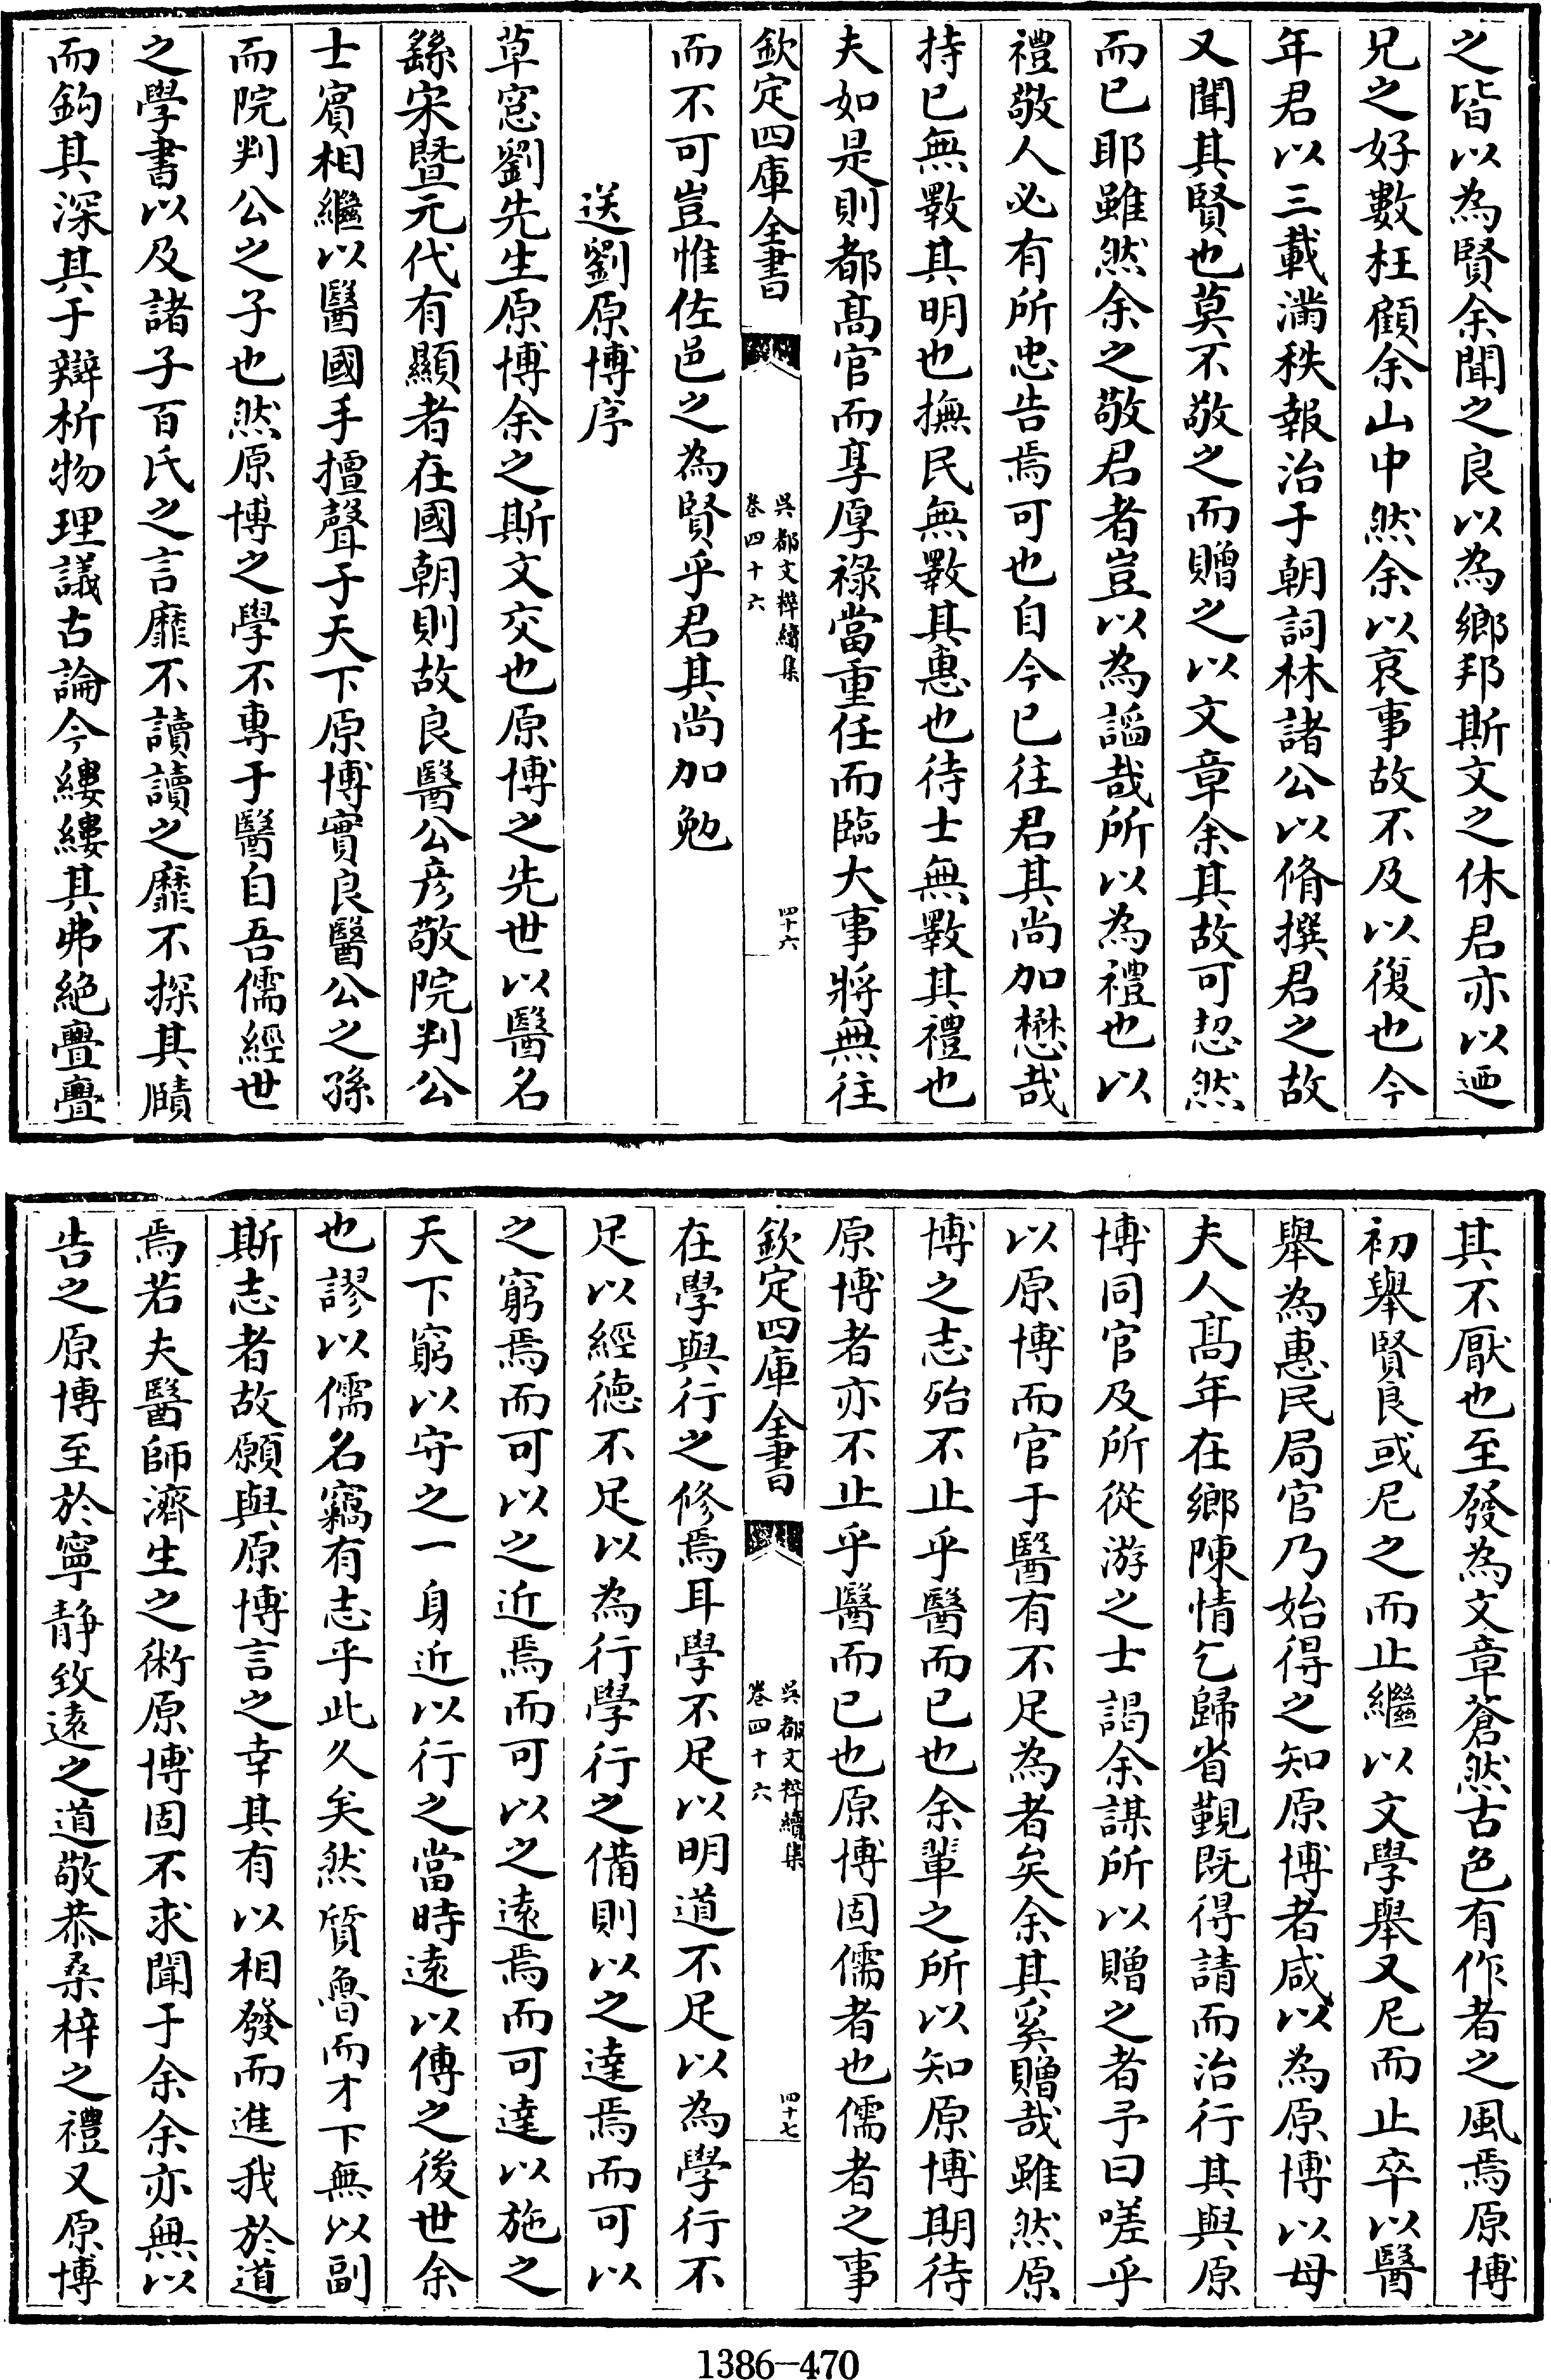 之皆以為賢余聞之良以為鄉邦斯文之休君亦以迺
兄之好數枉顧余山中然余以哀事故不及以復也今
年君以三載滿秩報治于朝詞林諸公以脩撰君之故
又聞其賢也莫不敬之而贈之以文章余其故可恝然
而已耶雖然余之敬君者豈以為謟哉所以為禮也以
禮敬人必有所忠告焉可也自今已往君其尚加懋哉
持已無斁其明也撫民無斁其惠也待士無斁其禮也
夫如是則都髙官而享厚祿當重任而臨大事將無往
欽定四庫全書
吳都文粹續集
卷四十六
四十六
而不可豈惟佐邑之為賢乎君其尚加勉
送劉原博序
草窓劉先生原博余之斯文交也原博之先世以醫名
繇宋暨元代有顯者在國朝則故良醫公彦敬院判公
士賔相繼以醫國手擅聲于天下原博實良醫公之孫
而院判公之子也然原博之學不專于醫自吾儒經世
之學書以及諸子百氏之言靡不讀讀之靡不探其賾
而鈎其深其于辯析物理議古論今縷縷其弗絶亹亹
其不厭也至發為文章蒼然古色有作者之風焉原博
初舉賢良或尼之而止繼以文學舉又尼而止卒以醫
舉為惠民局官乃始得之知原博者咸以為原博以母
夫人髙年在鄉陳情乞歸省覲既得請而治行其與原
博同官及所從游之士謁余謀所以贈之者予曰嗟乎
以原博而官于醫有不足為者矣余其奚贈哉雖然原
博之志殆不止乎醫而已也余輩之所以知原博期待
原博者亦不止乎醫而已也原博固儒者也儒者之事
欽定四庫全書
吳都文粹續集
卷四十六
四十七
在學與行之修焉耳學不足以明道不足以為學行不
足以經徳不足以為行學行之備則以之達焉而可以
之窮焉而可以之近焉而可以之遠焉而可達以施之
天下窮以守之一身近以行之當時遠以傳之後世余
也謬以儒名竊有志乎此久矣然質魯而才下無以副
斯志者故願與原博言之幸其有以相發而進我於道
焉若夫醫師濟生之術原博固不求聞于余余亦無以
告之原博至於寧静致遠之道敬恭桑梓之禮又原博
1386-470